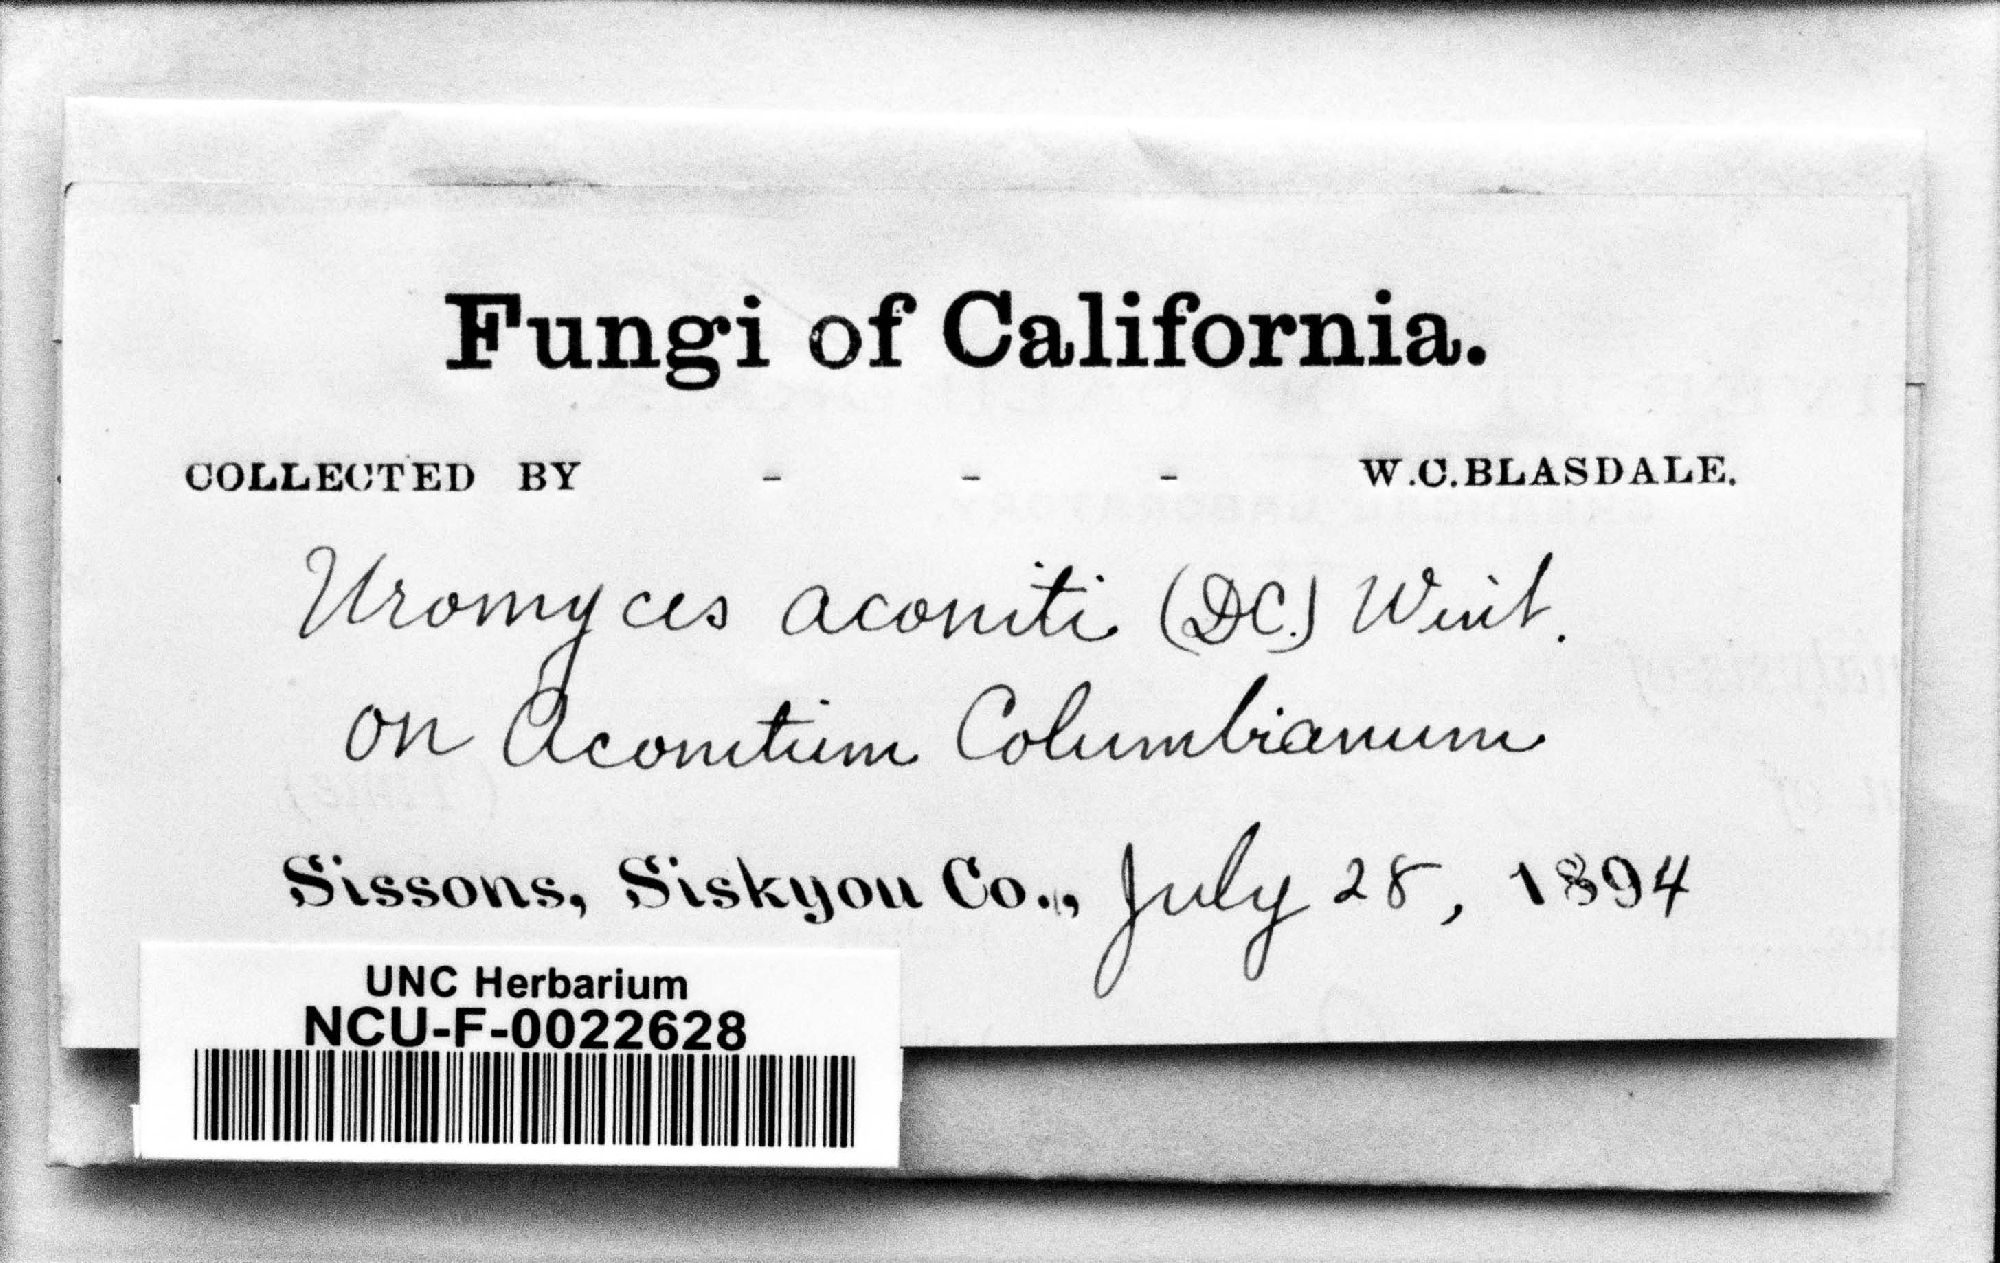 Fungi of California.
COLLECTED BY - - - W.C.BLASDALE.
Uromyces aconiti (DC.) Wint.
on Aconitum Columbianum
Sissons, Siskyou Co., July 28, 1894
UNC Herbarium
NCU-F-0022628